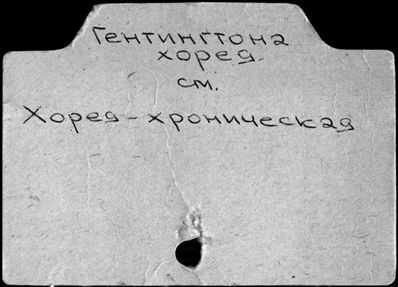 Гентингтона
хорея
см.
Хорея - хроническая